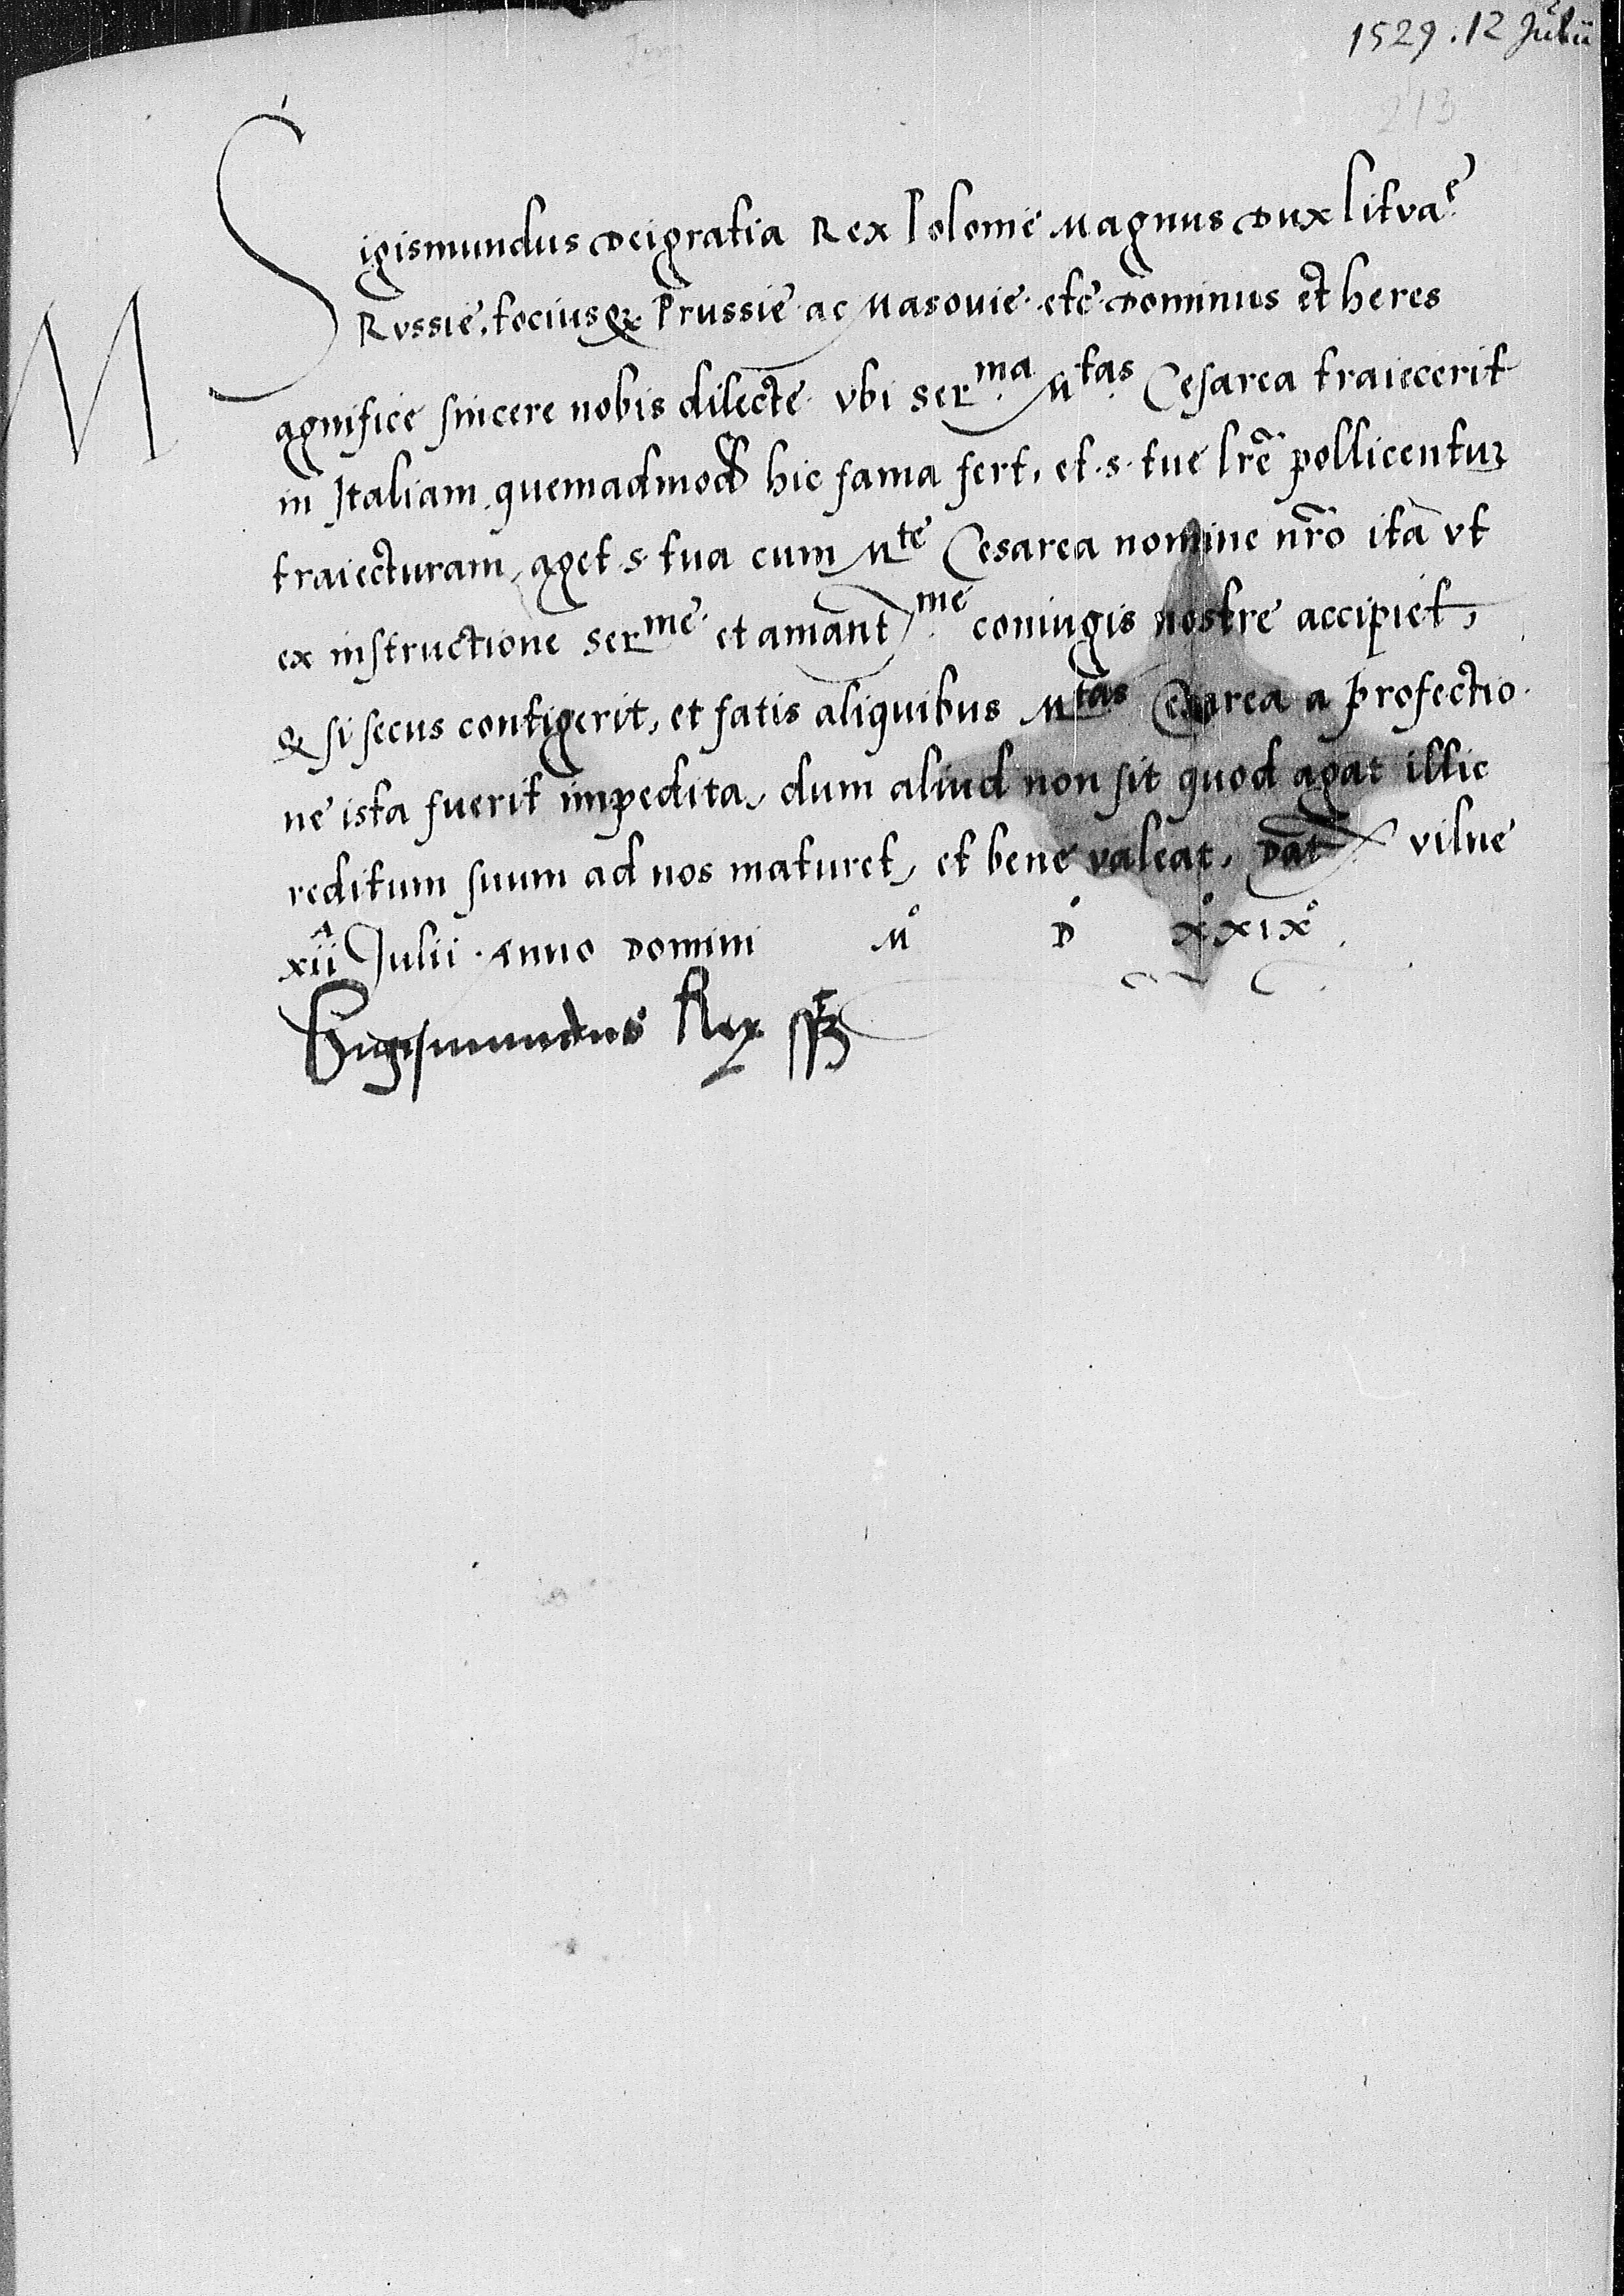 1529. 12 Julii
213
Sigismundus deigratia Rex Polonie Magnus Dux Litvae
Russie, tociusq₃ Prussie ac Masouie etc̄ Dominus et heres
Magnifice sincere nobis dilecte. vbi Ser.ma M.tas Cesarea traiecerit
in Italiam, quemadmod̄ hic fama fert, et. s. tue lr̄e pollicentur
traiecturam, aget s. tua cum M.te Cesarea nomine nr̄o ita vt
ex instructione Ser.me et amant.me coniugis nostre accipiet,
Q si secus contigerit, et fatis aliquibus M.tas Cesarea a profectio-
ne ista fuerit impedita, dum aliud non sit quod agat illic
reditum suum ad nos maturet, et bene valeat. Dat̄ vilne
xii Julii Anno Domini M° D° X°XIX°.
Sigismundus Rex sst